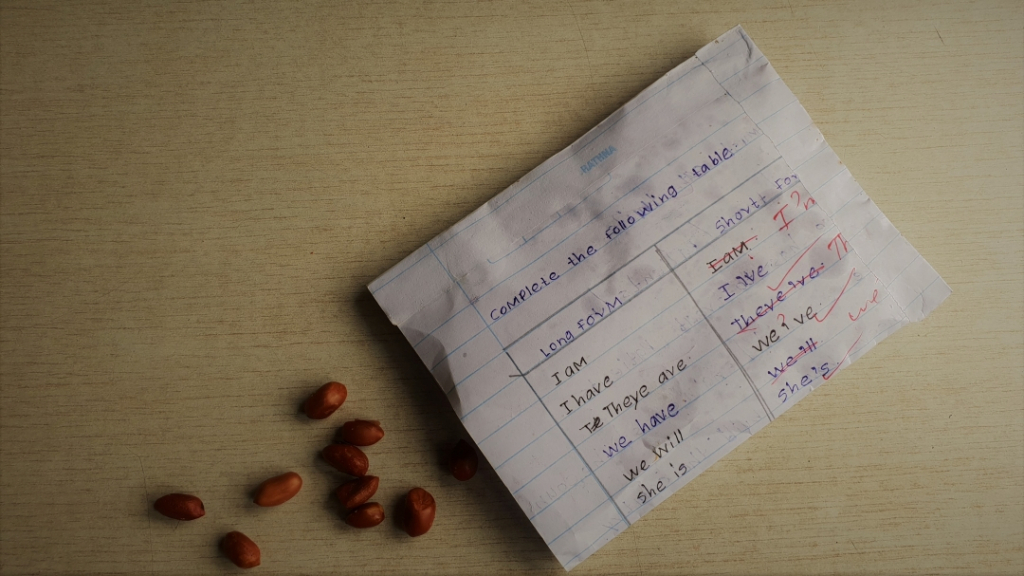 RATHNA
COMPLETE the Following table
Long form Short For
I am I am I'm
I have I 've
Te Theye ave There 've Th
we have we've
we will we ill we
she is she's